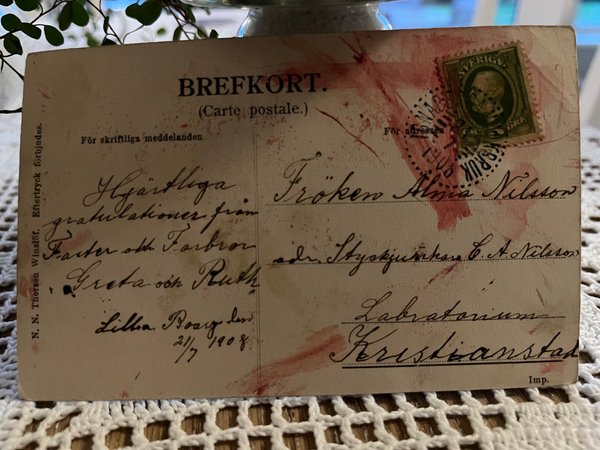 BREFKORT.
(Carte postale.)
För skriftliga meddelanden
För adressen
SVERIGE
Hjärtliga
gratulationer från
Faster och Farbror
Greta och Ruth
Lilla Boarp den
21/7 1908
Fröken Alma Nilsson
adr. C A Nilsson
Labratorium
Kristianstad
N. N. Thorsen Winslöf. Eftertryck förbjudes.
Imp.